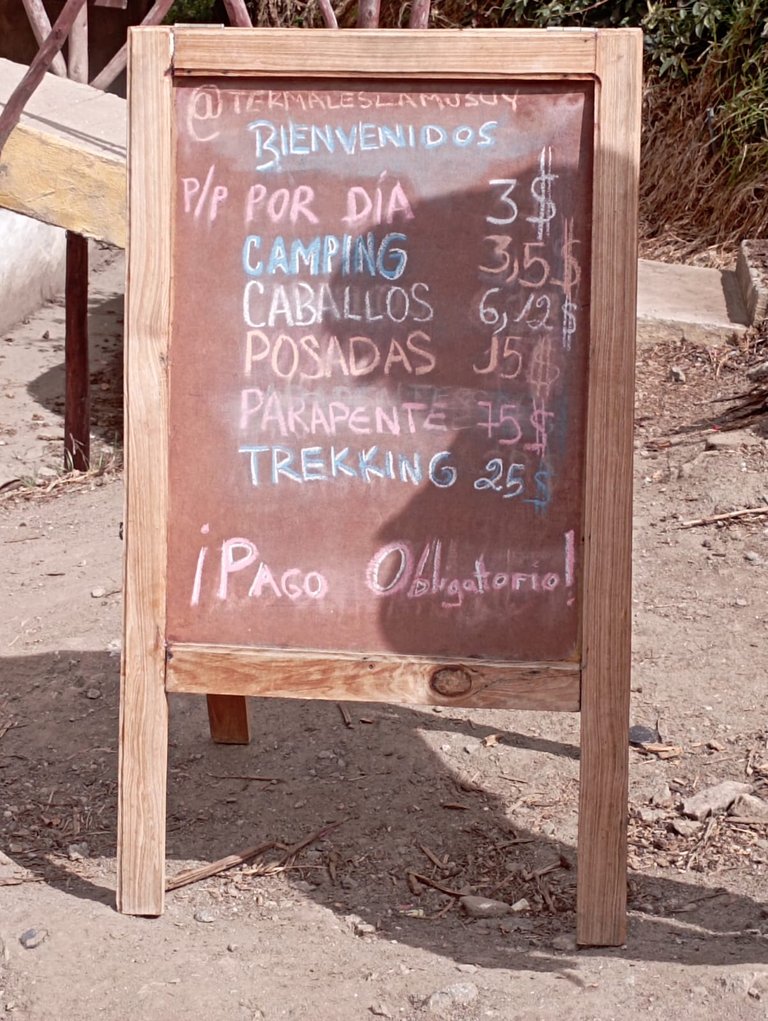 @TERMALESLAMUSUY
BIENVENIDOS
P/P POR DÍA 3$
CAMPING 3,5$
CABALLOS 6,12$
POSADAS 15$
PARAPENTE 75$
TREKKING 25$
¡PAGO Obligatorio!